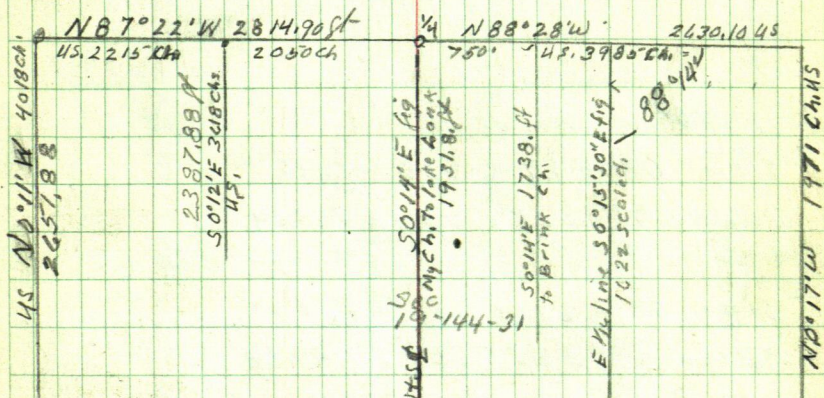 N 87°22'W 2814.90ft
1/4
N 88°28'W 2630.10 US
US. 2215 Ch.
2050Ch
750'
US. 3985 Ch.
88°14'
US N 0°11' W 4018Ch.
2651.88
2387.88 ft
S 0°12' E 3618 Chs.
US.
S 0°14' E fig
My Ch. to lake bank
1931.8 ft
S 0°14' E 1738. ft
to Brink Ch.
E 1/16 line S 0°15'30" E fig
1622 scaled.
N 0°17' W 1971 Ch. US
Sec
19-144-31